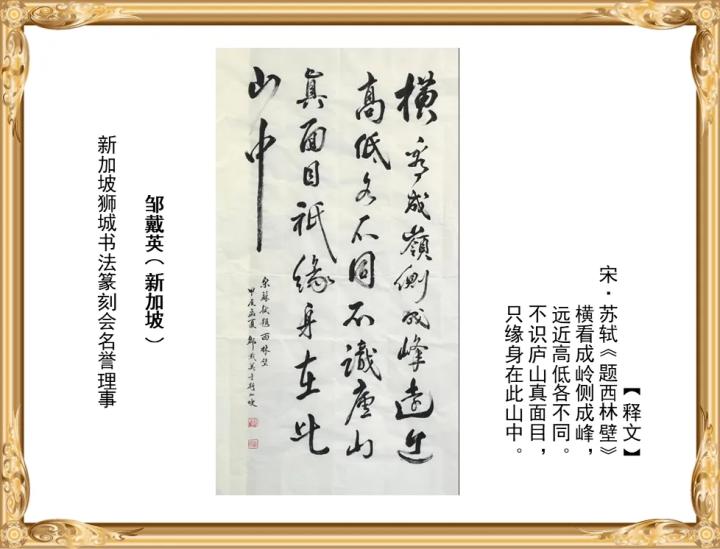 【释文】
宋·苏轼《题西林壁》
横看成岭侧成峰，
远近高低各不同。
不识庐山真面目，
只缘身在此山中。
橫看成嶺側成峰遠近
高低各不同不識廬山
真面目祇緣身在此
山中
宋蘇軾題西林壁
甲辰 夏 鄒戴英
邹戴英（新加坡）
新加坡狮城书法篆刻会名誉理事